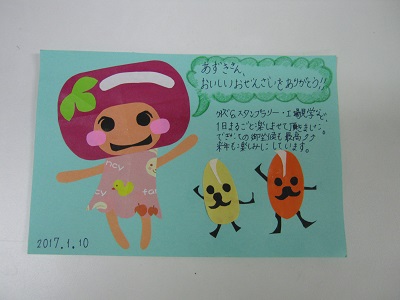 あずきさん、
おいしいおぜんざいをありがとう!!
スタンプラリー・工場見学など、
1日まるごと楽しませて頂きました。
できたての御座候も最高♪♪
来年も楽しみにしています。
ncv
2017.1.10